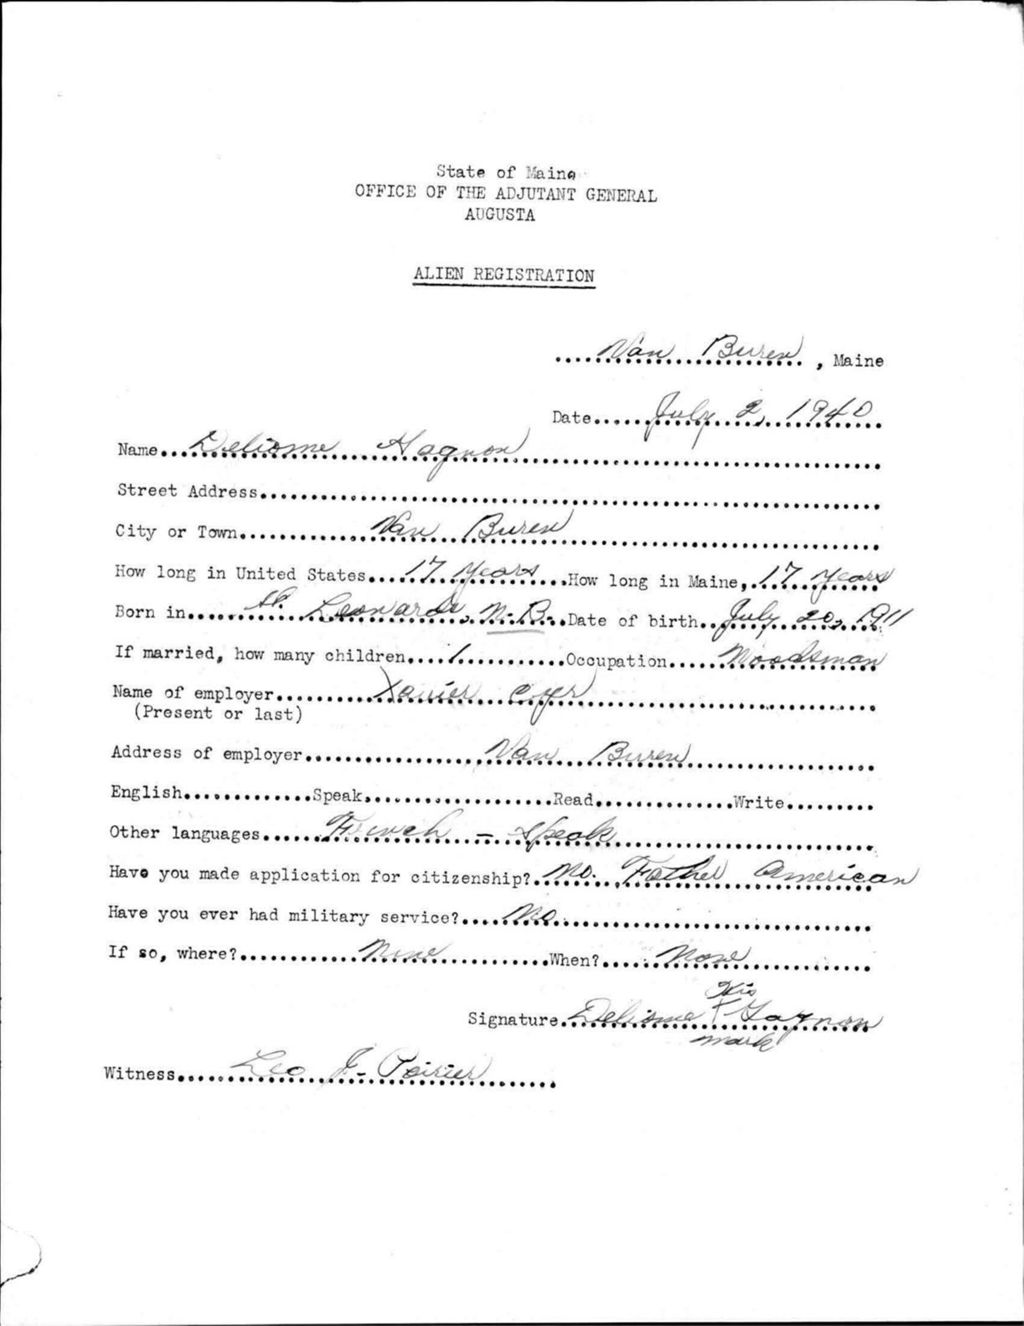 State of Maine
OFFICE OF THE ADJUTANT GENERAL
AUGUSTA
ALIEN REGISTRATION
Van Buren, Maine
Date July 2, 1940
Name Deliome Gagnon
Street Address
City or Town Van Buren
How long in United States 17 Years How long in Maine, 17 Years
Born in St. Leonards, N.B. Date of birth July 20, 1911
If married, how many children 1 Occupation Woodsman
Name of employer Xavier Cyr
(Present or last)
Address of employer Van Buren
English Speak Read Write
Other languages French - Speak
Have you made application for citizenship? No. Father American
Have you ever had military service? No.
If so, where? None When? None
His
Signature Deliome + Gagnon
mark
Witness Leo J. Poirier